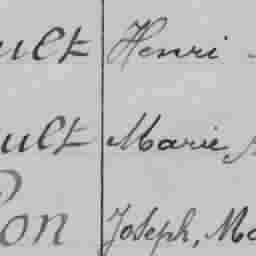 ult Henri
ult Marie
on Joseph, Ma